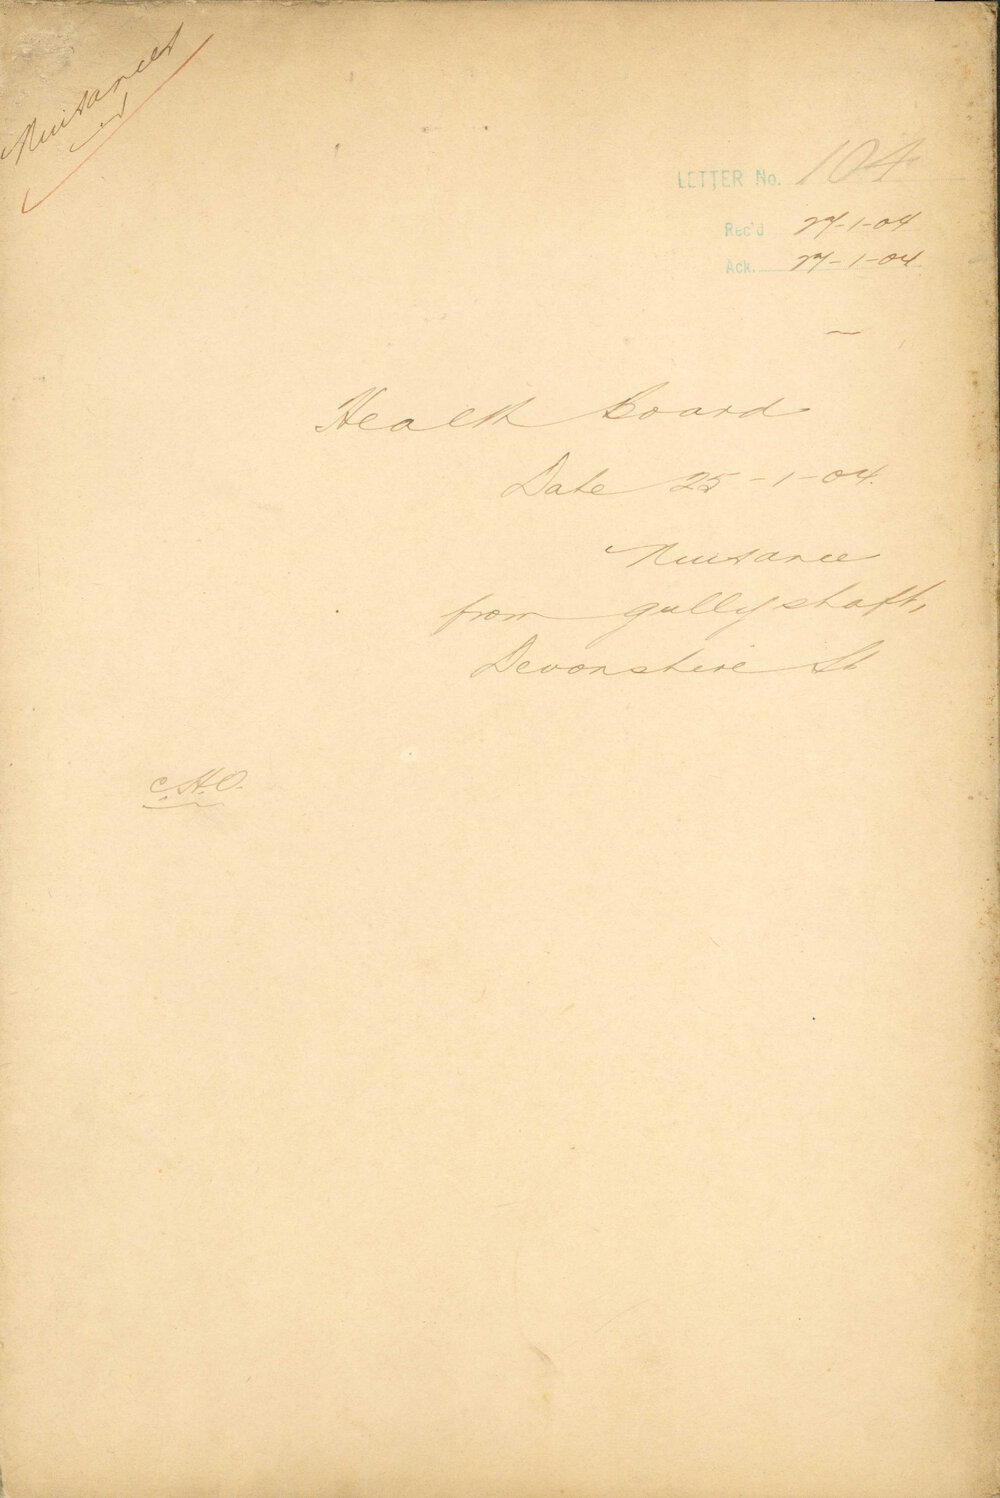 Nuisances
LETTER No. 104
Rec'd 27-1-04
Ack. 27-1-04
Health Board
Date 25-1-04.
Nuisance
from gully shaft,
Devonshire St
C.H.O.